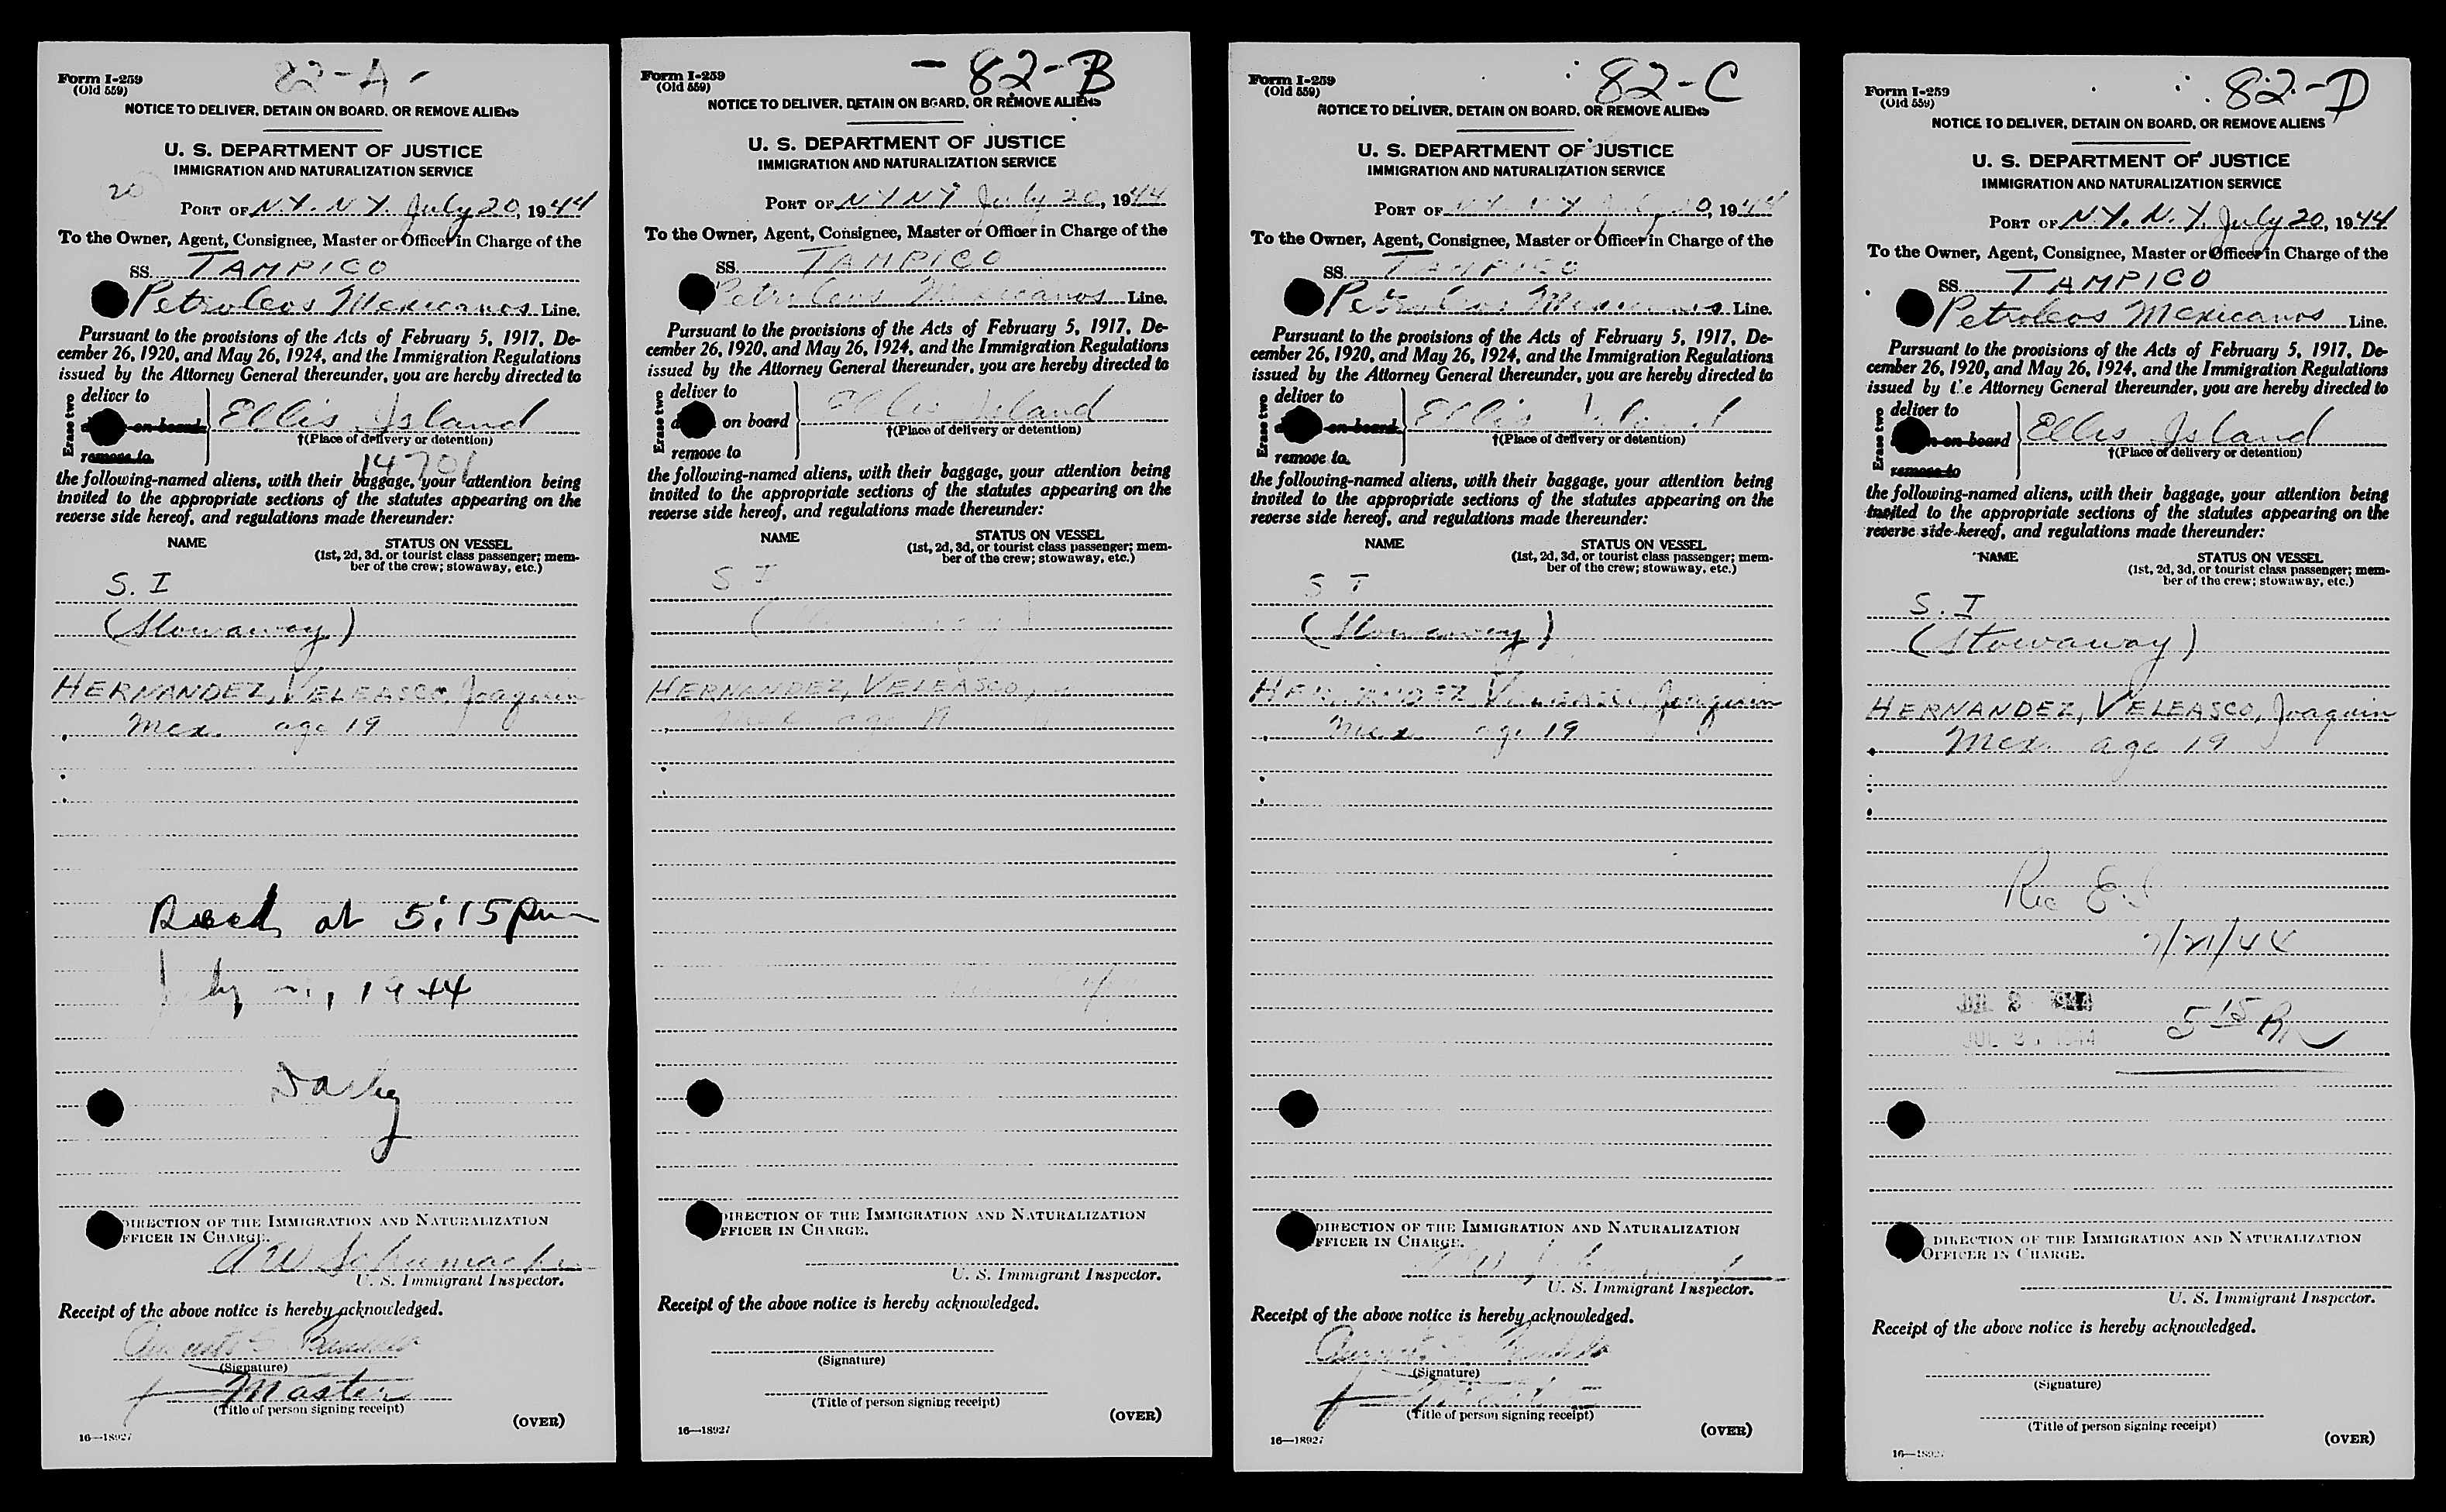 82-A
Form I-259
(Old 559)
NOTICE TO DELIVER, DETAIN ON BOARD, OR REMOVE ALIENS
U. S. DEPARTMENT OF JUSTICE
IMMIGRATION AND NATURALIZATION SERVICE
20
PORT OF N.Y. N.Y. July 20, 1944
To the Owner, Agent, Consignee, Master or Officer in Charge of the
SS. TAMPICO
Petroleos Mexicanos Line.
Pursuant to the provisions of the Acts of February 5, 1917, De-
cember 26, 1920, and May 26, 1924, and the Immigration Regulations
issued by the Attorney General thereunder, you are hereby directed to
Erase two
deliver to
on board
remove to
Ellis Island
†(Place of delivery or detention)
14701
the following-named aliens, with their baggage, your attention being
invited to the appropriate sections of the statutes appearing on the
reverse side hereof, and regulations made thereunder:
NAME STATUS ON VESSEL
(1st, 2d, 3d, or tourist class passenger; mem-
ber of the crew; stowaway, etc.)
S. I
(Stowaway)
HERNANDEZ, VELEASCO, Joaquin
Mex. age 19
Recd at 5:15 pm
July 1944
DIRECTION OF THE IMMIGRATION AND NATURALIZATION
OFFICER IN CHARGE.
A W Schumacher
U. S. Immigrant Inspector.
Receipt of the above notice is hereby acknowledged.
(Signature)
Master
(Title of person signing receipt)
(OVER)
16—18927
- 82-B
Form I-259
(Old 559)
NOTICE TO DELIVER, DETAIN ON BOARD, OR REMOVE ALIENS
U. S. DEPARTMENT OF JUSTICE
IMMIGRATION AND NATURALIZATION SERVICE
PORT OF N Y N Y July 20, 1944
To the Owner, Agent, Consignee, Master or Officer in Charge of the
SS. TAMPICO
Petroleos Mexicanos Line.
Pursuant to the provisions of the Acts of February 5, 1917, De-
cember 26, 1920, and May 26, 1924, and the Immigration Regulations
issued by the Attorney General thereunder, you are hereby directed to
Erase two
deliver to
on board
remove to
Ellis Island
†(Place of delivery or detention)
the following-named aliens, with their baggage, your attention being
invited to the appropriate sections of the statutes appearing on the
reverse side hereof, and regulations made thereunder:
NAME STATUS ON VESSEL
(1st, 2d, 3d, or tourist class passenger; mem-
ber of the crew; stowaway, etc.)
S I
HERNANDEZ, VELEASCO,
Mex age 19
DIRECTION OF THE IMMIGRATION AND NATURALIZATION
OFFICER IN CHARGE.
U. S. Immigrant Inspector.
Receipt of the above notice is hereby acknowledged.
(Signature)
(Title of person signing receipt)
(OVER)
16—18927
82-C
Form I-259
(Old 559)
NOTICE TO DELIVER, DETAIN ON BOARD, OR REMOVE ALIENS
U. S. DEPARTMENT OF JUSTICE
IMMIGRATION AND NATURALIZATION SERVICE
PORT OF N.Y. N.Y. July 20, 1944
To the Owner, Agent, Consignee, Master or Officer in Charge of the
SS. TAMPICO
Petroleos Mexicanos Line.
Pursuant to the provisions of the Acts of February 5, 1917, De-
cember 26, 1920, and May 26, 1924, and the Immigration Regulations
issued by the Attorney General thereunder, you are hereby directed to
Erase two
deliver to
on board
remove to
Ellis Island
†(Place of delivery or detention)
the following-named aliens, with their baggage, your attention being
invited to the appropriate sections of the statutes appearing on the
reverse side hereof, and regulations made thereunder:
NAME STATUS ON VESSEL
(1st, 2d, 3d, or tourist class passenger; mem-
ber of the crew; stowaway, etc.)
S I
(Stowaway)
HERNANDEZ VELEASCO, Joaquin
Mex. age 19
DIRECTION OF THE IMMIGRATION AND NATURALIZATION
OFFICER IN CHARGE.
U. S. Immigrant Inspector.
Receipt of the above notice is hereby acknowledged.
(Signature)
(Title of person signing receipt)
(OVER)
16—18927
82-D
Form I-259
(Old 559)
NOTICE TO DELIVER, DETAIN ON BOARD, OR REMOVE ALIENS
U. S. DEPARTMENT OF JUSTICE
IMMIGRATION AND NATURALIZATION SERVICE
PORT OF N.Y. N.Y. July 20, 1944
To the Owner, Agent, Consignee, Master or Officer in Charge of the
SS. TAMPICO
Petroleos Mexicanos Line.
Pursuant to the provisions of the Acts of February 5, 1917, De-
cember 26, 1920, and May 26, 1924, and the Immigration Regulations
issued by the Attorney General thereunder, you are hereby directed to
Erase two
deliver to
on board
remove to
Ellis Island
†(Place of delivery or detention)
the following-named aliens, with their baggage, your attention being
invited to the appropriate sections of the statutes appearing on the
reverse side hereof, and regulations made thereunder:
NAME STATUS ON VESSEL
(1st, 2d, 3d, or tourist class passenger; mem-
ber of the crew; stowaway, etc.)
S. I
(Stowaway)
HERNANDEZ, VELEASCO, Joaquin
Mex. age 19
Rec E.I
7/21/44
5 15 Pm
DIRECTION OF THE IMMIGRATION AND NATURALIZATION
OFFICER IN CHARGE.
U. S. Immigrant Inspector.
Receipt of the above notice is hereby acknowledged.
(Signature)
(Title of person signing receipt)
(OVER)